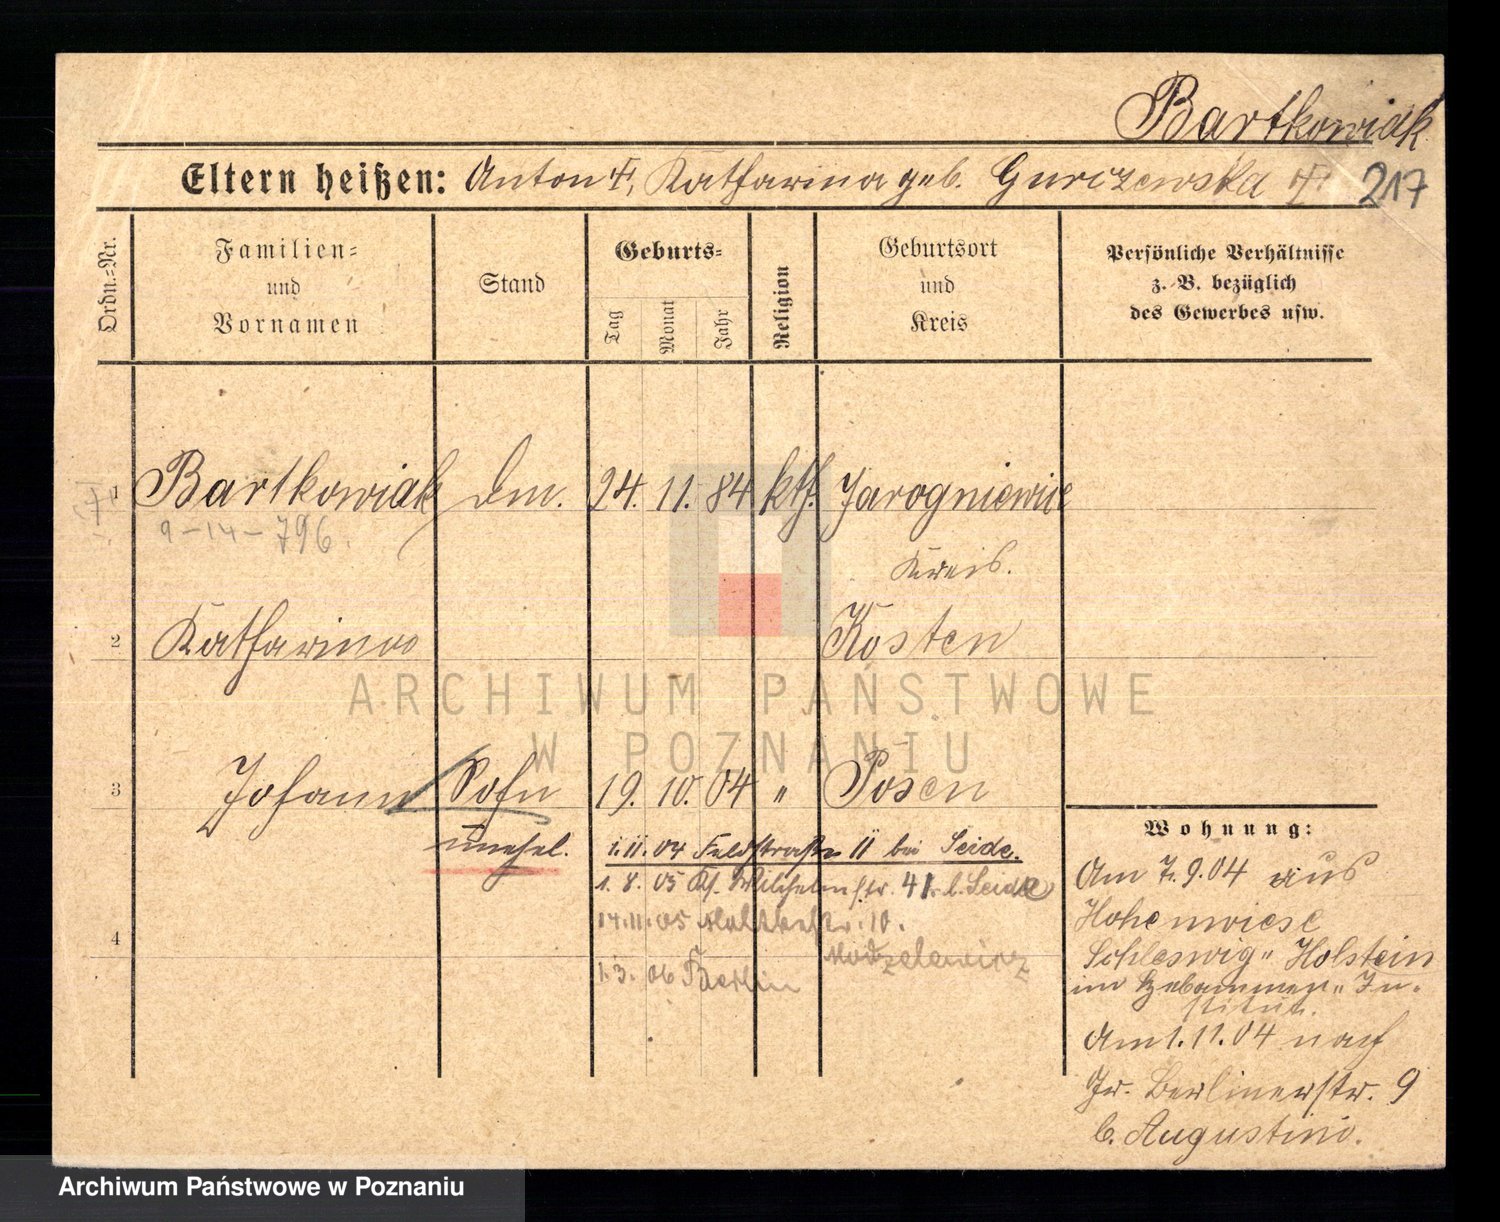 Bartkowiak
Eltern heißen: Anton †, Katharina geb. Gurczewska † 217
Ordn.-Nr.
Familien-
und
Vornamen
Stand
Geburts-
Tag
Monat
Jahr
Religion
Geburtsort
und
Kreis
Persönliche Verhältnisse
z. B. bezüglich
des Gewerbes usw.
1 Bartkowiak 24. 11. 84 kth. Jarogniewice
9-14-796.
Kreis.
2 Katharina Kosten
3 Johann Sohn 19. 10. 04 " Posen
unehel. 1.11.04 Feldstraße 11 bei Seide.
1.8.05 Wilhelmstr. 41. b. Seide
14.11.05 Moltkestr. 10.
Modzelewicz
4
1.3.06 Berlin
Wohnung:
Am 7.9.04 aus
Hohenwiese
Schleswig-Holstein
im Hebammen-In-
stitut.
Am 1.11.04 nach
Gr. Berlinerstr. 9
b. Augustino.
ARCHIWUM PAŃSTWOWE
W POZNANIU
Archiwum Państwowe w Poznaniu